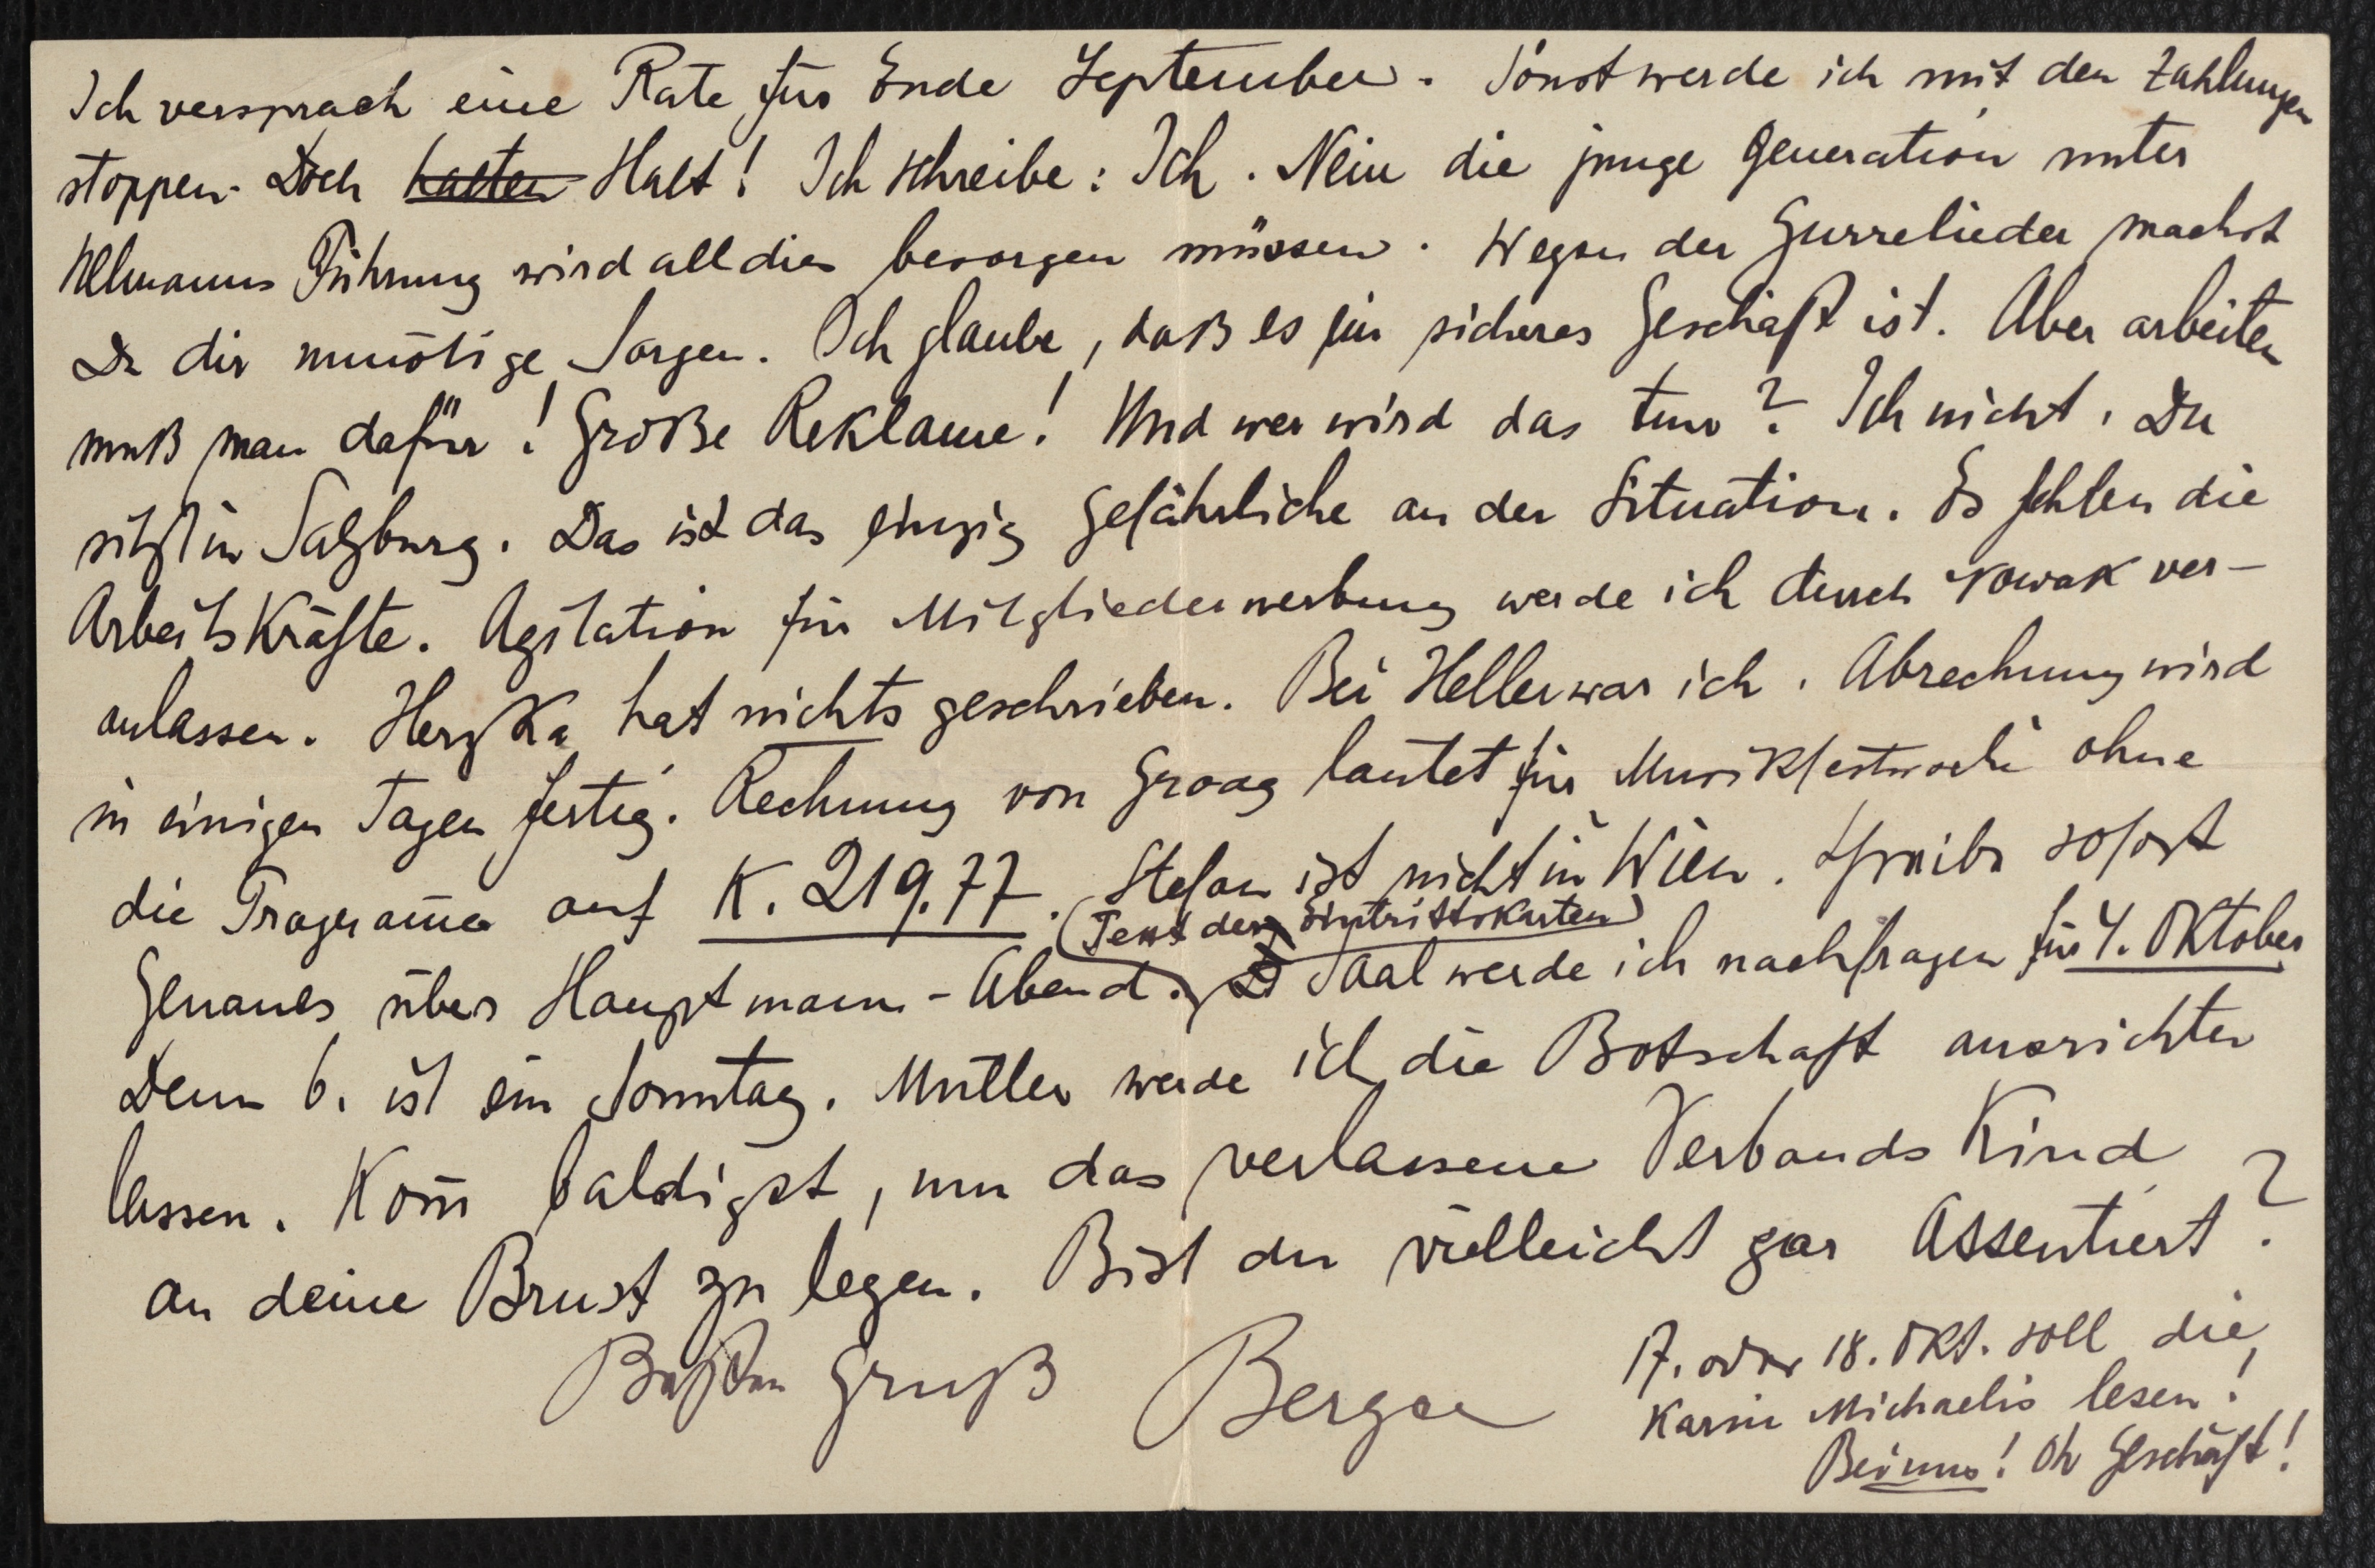 Ich versprach eine Rate für Ende September. Sonst werde ich mit den Zahlungen
stoppen. Doch halten Halt! Ich schreibe: Ich. Nein die junge Generation unter
Ullmanns Führung wird all dies besorgen müssen. Wegen der Gurrelieder machst
Du dir unnötige Sorgen. Ich glaube, daß es ein sicheres Geschäft ist. Aber arbeiten
muß man dafür! Große Reklame! Und wer wird das tun? Ich nicht. Du
sitzt in Salzburg. Das ist das einzig Gefährliche an der Situation. Es fehlen die
Arbeitskräfte. Agitation für Mitgliederwerbung werde ich durch Nowak ver-
anlassen. Herzka hat nichts geschrieben. Bei Heller war ich. Abrechnung wird
in einigen Tagen fertig. Rechnung von Groag lautet für Musikfestwoche ohne
die Programme auf K. 219.77. Stefan ist nicht in Wien. Schreibe sofort
(Text der Eintrittskarten)
Genaues über Hauptmann-Abend. Saal werde ich nachfragen für 4. Oktober
Denn 6. ist ein Sonntag. Mutter werde ich die Botschaft ausrichten
lassen. Kom̄ baldigst, um das verlassene Verbands Kind
an deine Brust zu legen. Bist du vielleicht gar Assentiert?
Besten Gruß Berger
17. oder 18. Okt. soll die
Karin Michaelis lesen!
Bei uns! Oh Geschäft!